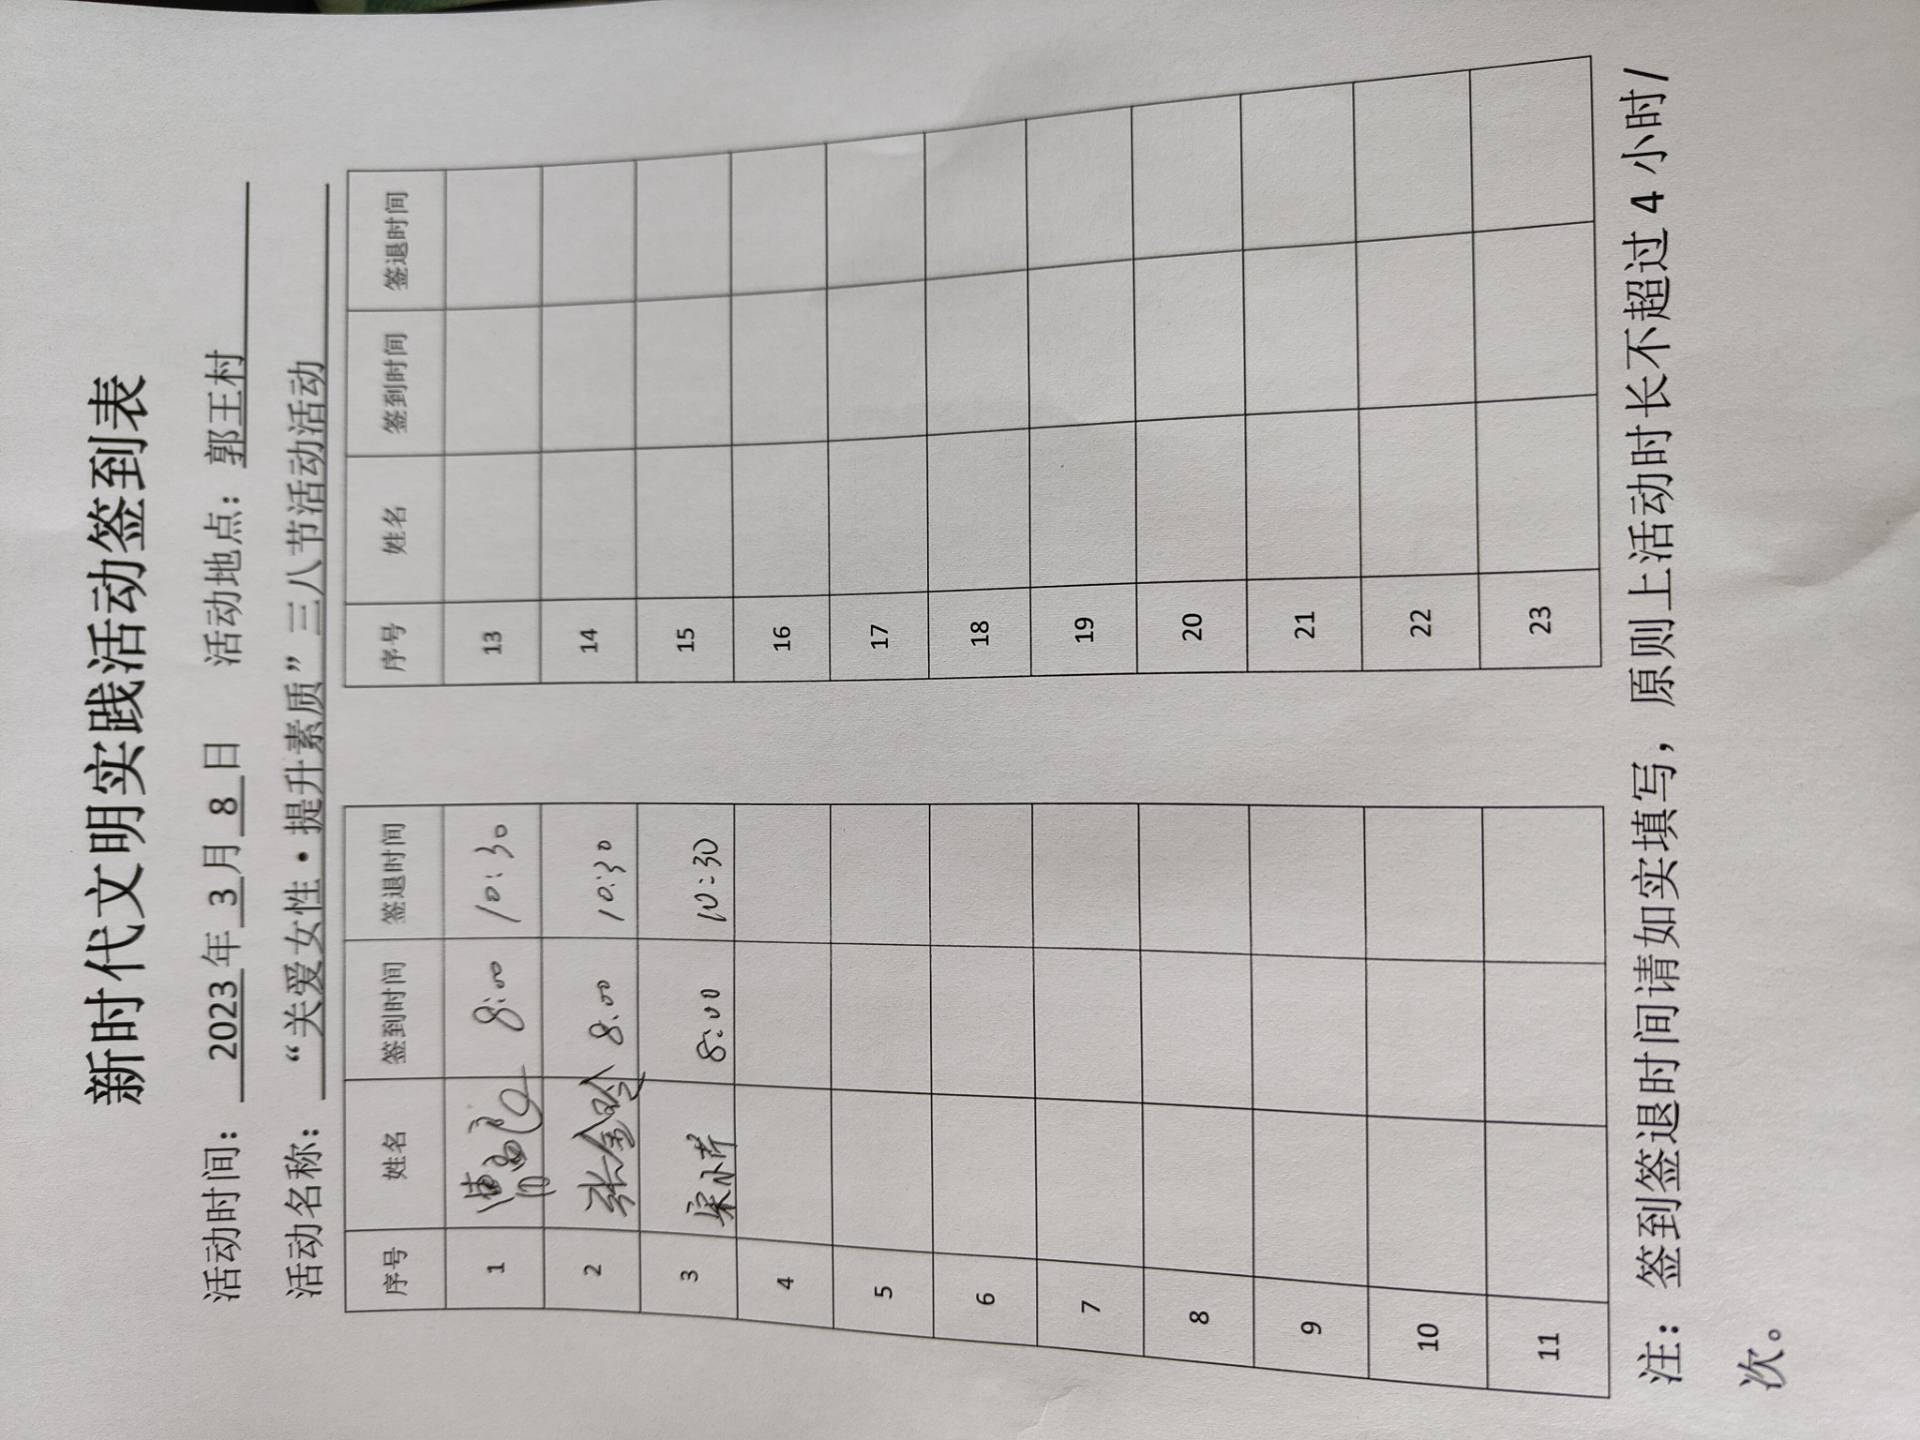 新时代文明实践活动签到表
活动时间： 2023 年 3 月 8 日 活动地点：郭王村
活动名称： “关爱女性·提升素质”三八节活动活动
序号 姓名 签到时间 签退时间 序号 姓名 签到时间 签退时间
1 8:00 10:30 13
2 张金玲 8:00 10:30 14
3 8:00 10:30 15
4 16
5 17
6 18
7 19
8 20
9 21
10 22
11 23
注：签到签退时间请如实填写，原则上活动时长不超过 4 小时/
次。